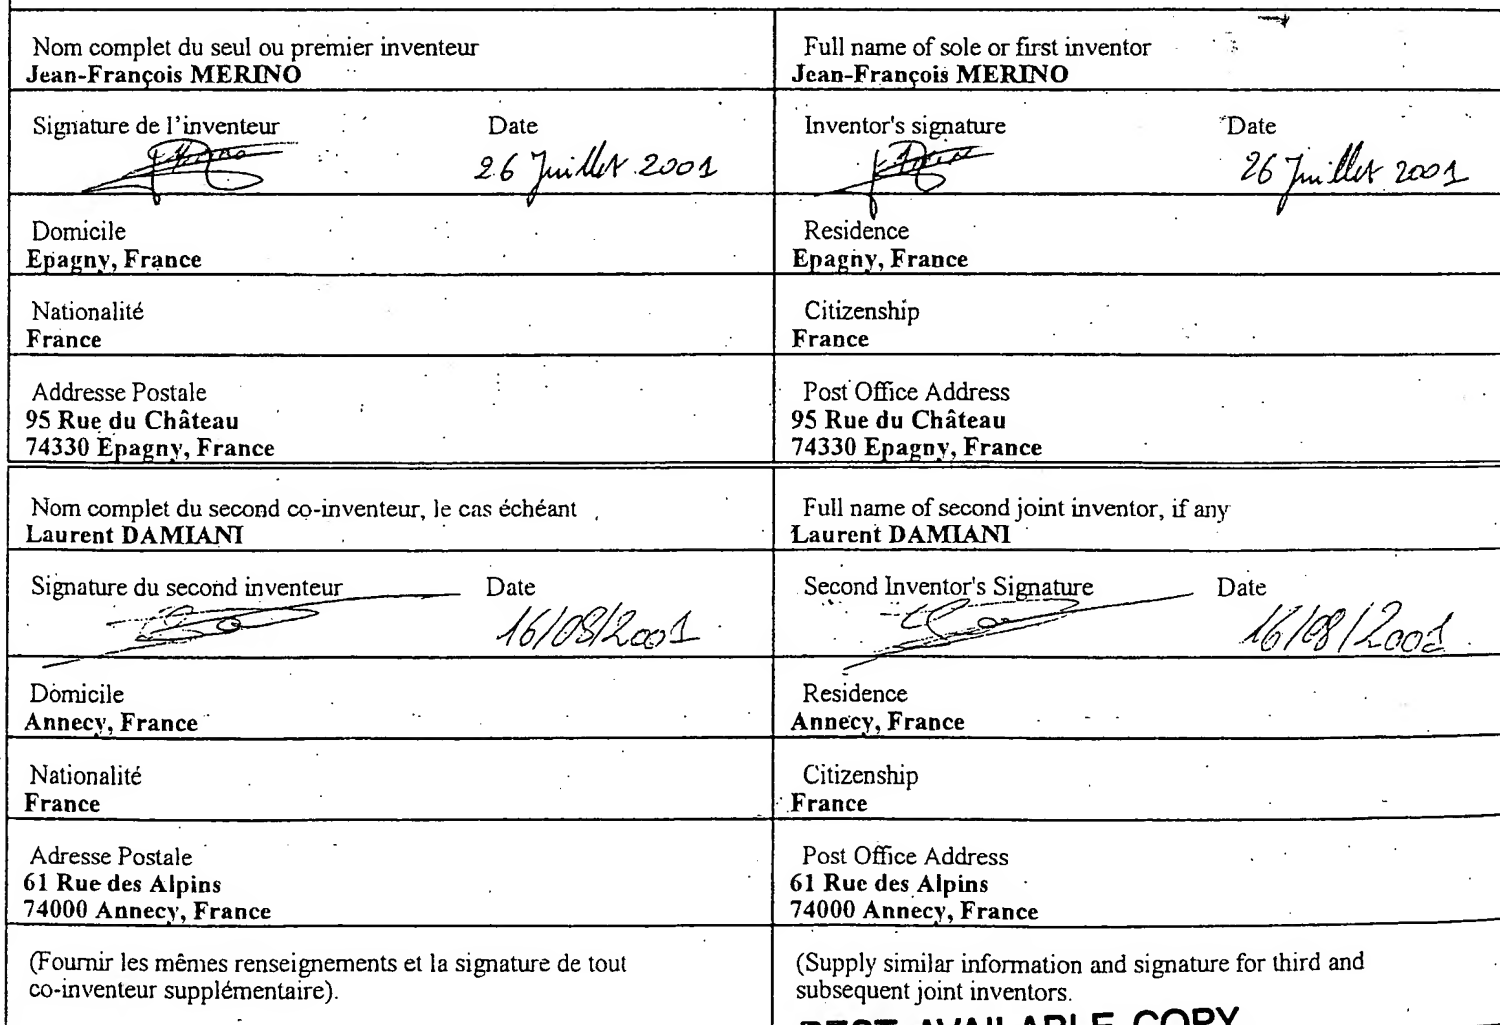 Nom complet du seul ou premier inventeur
Jean-François MERINO
Full name of sole or first inventor
Jean-François MERINO
Signature de l'inventeur Date
26 Juillet 2001
Inventor's signature Date
26 Juillet 2001
Domicile
Epagny, France
Residence
Epagny, France
Nationalité
France
Citizenship
France
Addresse Postale
95 Rue du Château
74330 Epagny, France
Post Office Address
95 Rue du Château
74330 Epagny, France
Nom complet du second co-inventeur, le cas échéant
Laurent DAMIANI
Full name of second joint inventor, if any
Laurent DAMIANI
Signature du second inventeur Date
16/08/2001
Second Inventor's Signature Date
16/08/2001
Domicile
Annecy, France
Residence
Annecy, France
Nationalité
France
Citizenship
France
Adresse Postale
61 Rue des Alpins
74000 Annecy, France
Post Office Address
61 Rue des Alpins
74000 Annecy, France
(Fournir les mêmes renseignements et la signature de tout
co-inventeur supplémentaire).
(Supply similar information and signature for third and
subsequent joint inventors.
BEST AVAILABLE COPY